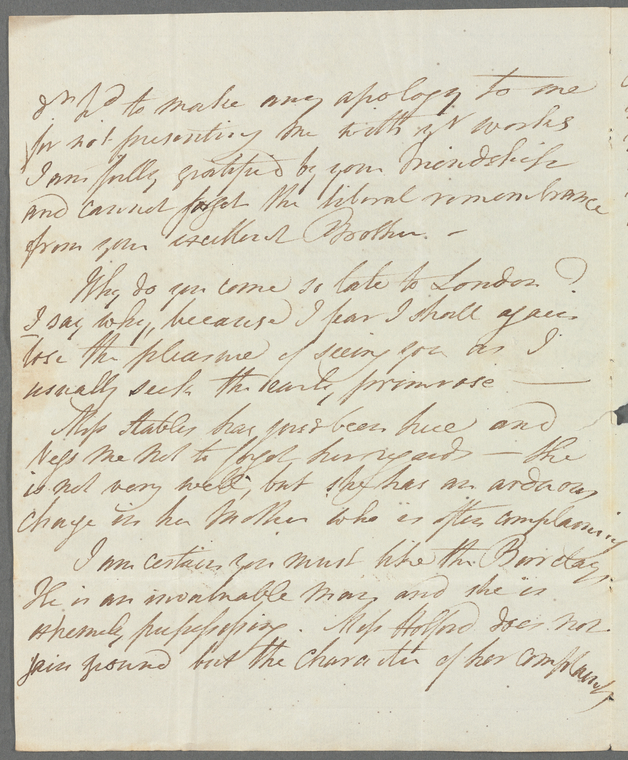 to make any apology to me
for not presenting me with yr works
I am fully gratified by your Friendship
and cannot forget the liberal remembrance
from your excellent Brother. –
Why do you come so late to London?
I say why, because I fear I shall again
lose the pleasure of seeing you as I
usually seek the early primrose —
Miss Stables has just been here and
begs me not to forget her regards – She
is not very well, but she has an arduous
charge in her Mother who is often complaining
I am certain you must like the Barclays,
He is an invaluable Man and she is
extremely prepossessing. Miss Holford does not
gain ground but the character of her complaints